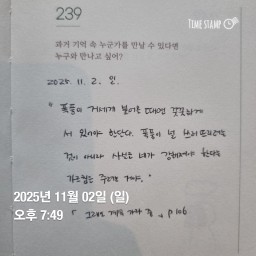 239
TIME STAMP
과거 기억 속 누군가를 만날 수 있다면
누구와 만나고 싶어?
2025. 11. 2. 일.
" 폭풍이 거세게 불어올 때엔 꼿꼿하게
서 있어야 한단다. 폭풍이 널 쓰러뜨리려는
것이 아니라 사실은 네가 강해져야 한다는
가르침을 주려는 거야. "
2025년 11월 02일 (일)
오후 7:49
「그래도 계속 가라 중 p106